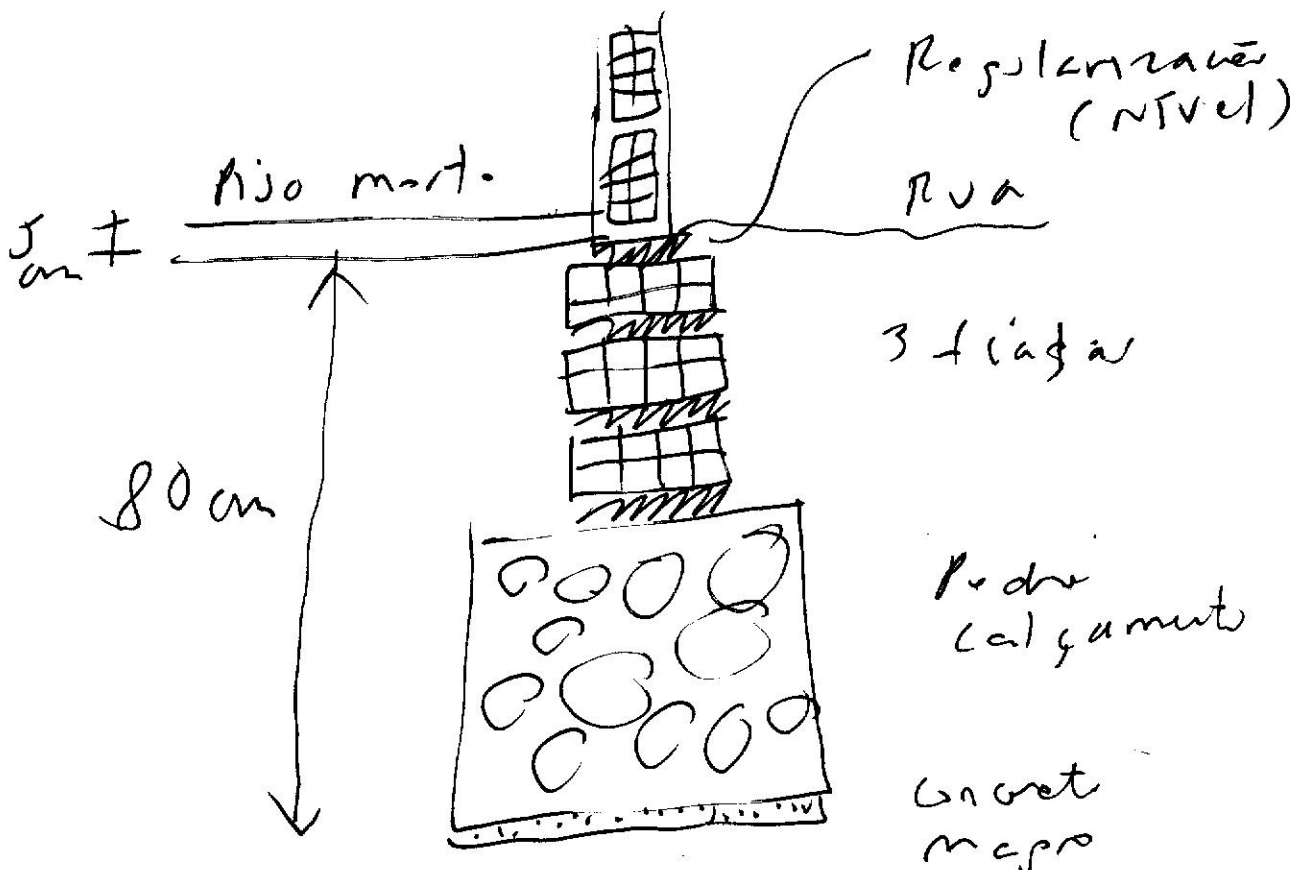 Regularização
(Nível)
Piso morto
Rua
5
cm
3 fiadas
80 cm
Pedra
calçamento
Concreto
magro